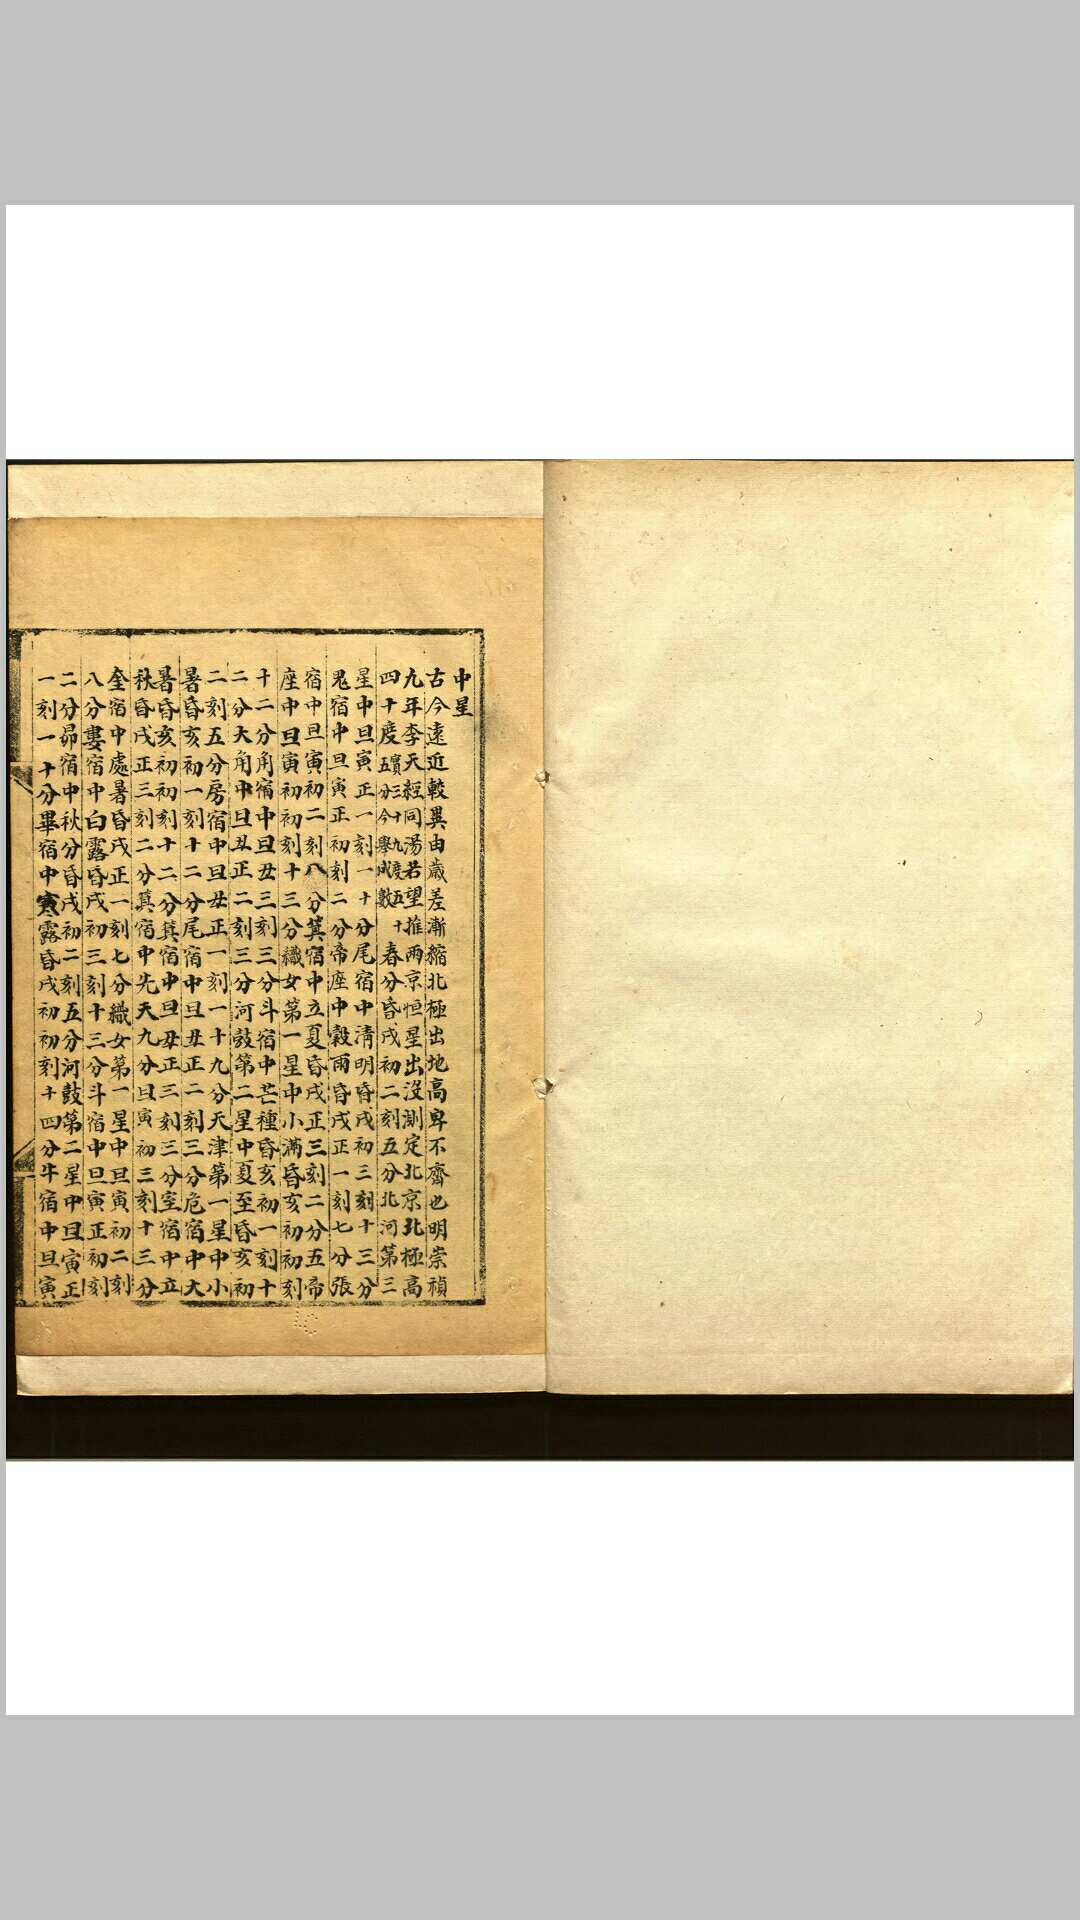 中星
古今遠近較異由歲差漸縮北極出地高卑不齊也明崇禎
九年李天經同湯若望推兩京恒星出沒測定北京北極高
四十度實三十九度五十五分今舉成數春分昏戌初二刻五分北河第三
星中旦寅正一刻一十分尾宿中清明昏戌初三刻十三分
鬼宿中旦寅正初刻二分帝座中穀雨昏戌正一刻七分張
宿中旦寅初二刻八分箕宿中立夏昏戌正三刻二分五帝
座中旦寅初初刻十三分織女第一星中小滿昏亥初初刻
十二分角宿中旦丑三刻三分斗宿中芒種昏亥初一刻十
二分大角中旦丑正二刻三分河鼓第二星中夏至昏亥初
二刻五分房宿中旦丑正一刻一十九分天津第一星中小
暑昏亥初一刻十二分尾宿中旦丑正二刻三分危宿中大
暑昏亥初初刻十二分箕宿中旦丑正三刻三分室宿中立
秋昏戌正三刻二分箕宿中先天九分旦寅初三刻十三分
奎宿中處暑昏戌正一刻七分織女第一星中旦寅初二刻
八分婁宿中白露昏戌初三刻十三分斗宿中旦寅正初刻
二分昴宿中秋分昏戌初二刻五分河鼓第二星中旦寅正
一刻一十分畢宿中寒露昏戌初初刻十四分牛宿中旦寅